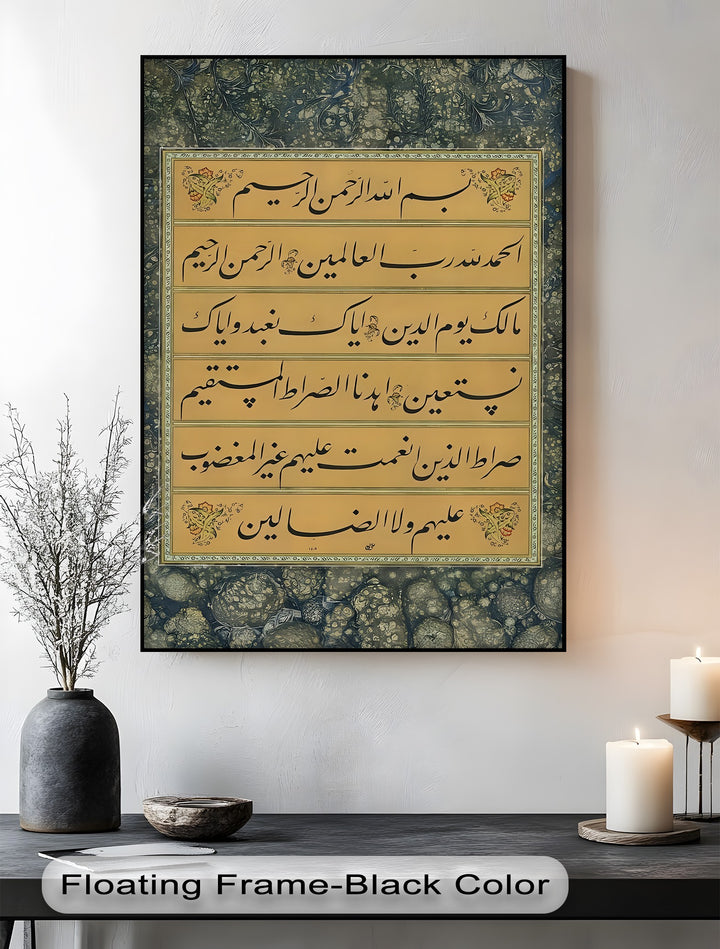 بسم الله الرحمن الرحيم
الحمد لله رب العالمين الرحمن الرحيم
مالك يوم الدين اياك نعبد واياك
نستعين اهدنا الصراط المستقيم
صراط الذين انعمت عليهم غير المغضوب
عليهم ولا الضالين
Floating Frame-Black Color